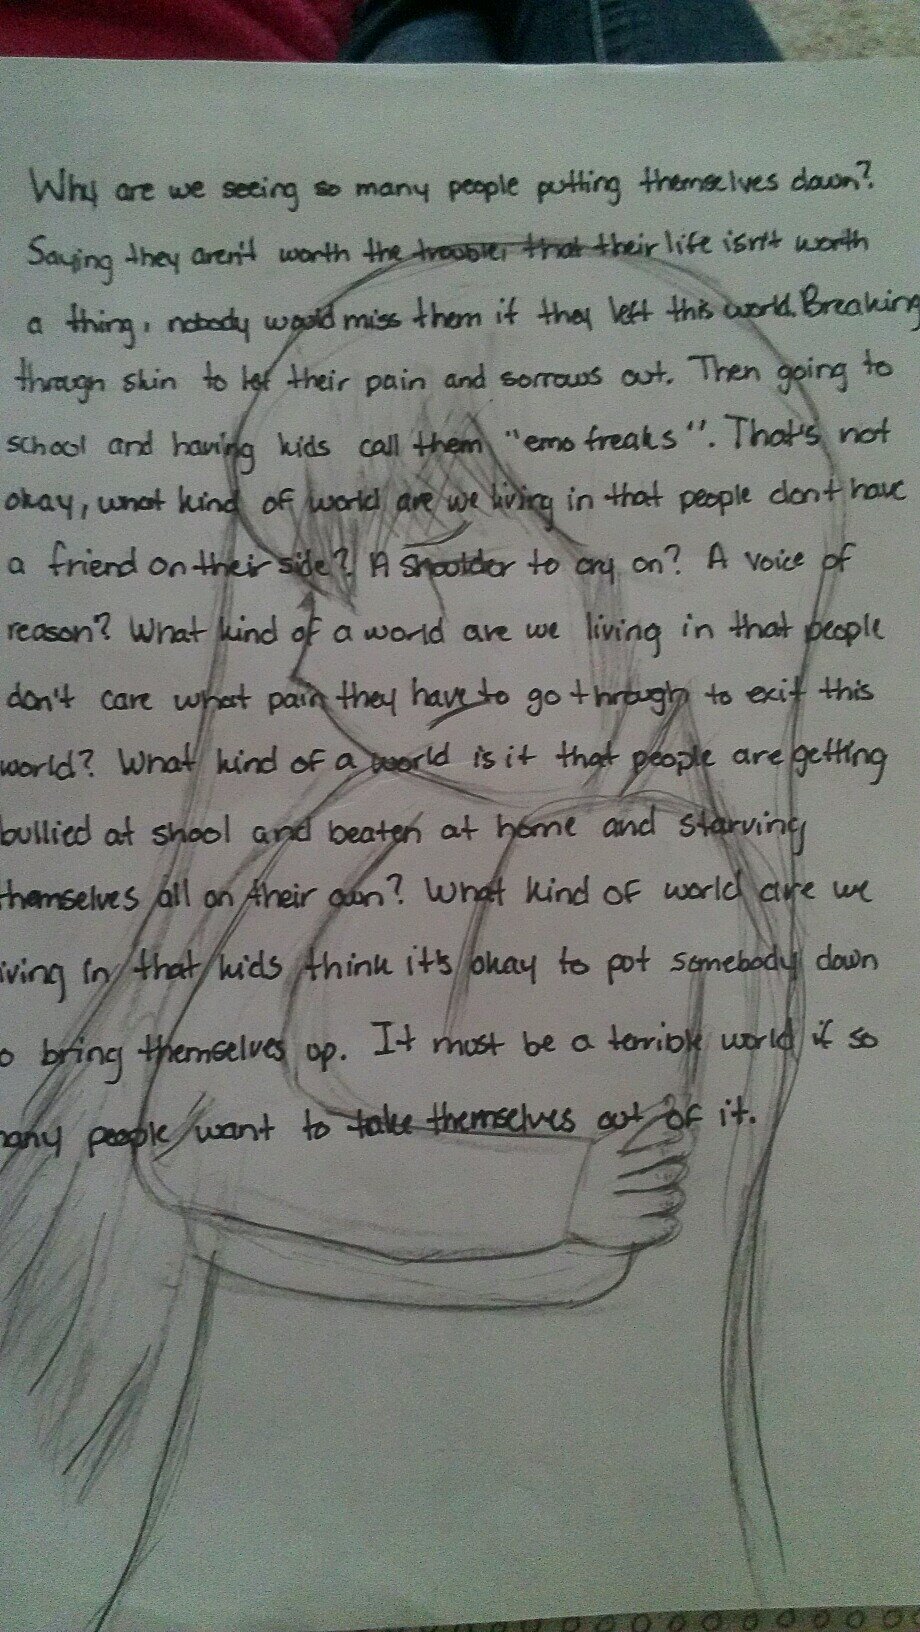 Why are we seeing so many people putting themselves down?
Saying they aren't worth the trouble, that their life isn't worth
a thing, nobody would miss them if they left this world. Breaking
through skin to let their pain and sorrows out. Then going to
school and having kids call them "emo freaks". That's not
okay, what kind of world are we living in that people don't have
a friend on their side? A shoulder to cry on? A voice of
reason? What kind of a world are we living in that people
don't care what pain they have to go through to exit this
world? What kind of a world is it that people are getting
bullied at shool and beaten at home and starving
themselves all on their own? What kind of world are we
iving in that kids think it's okay to put somebody down
o bring themselves up. It must be a terrible world if so
any people want to take themselves out of it.